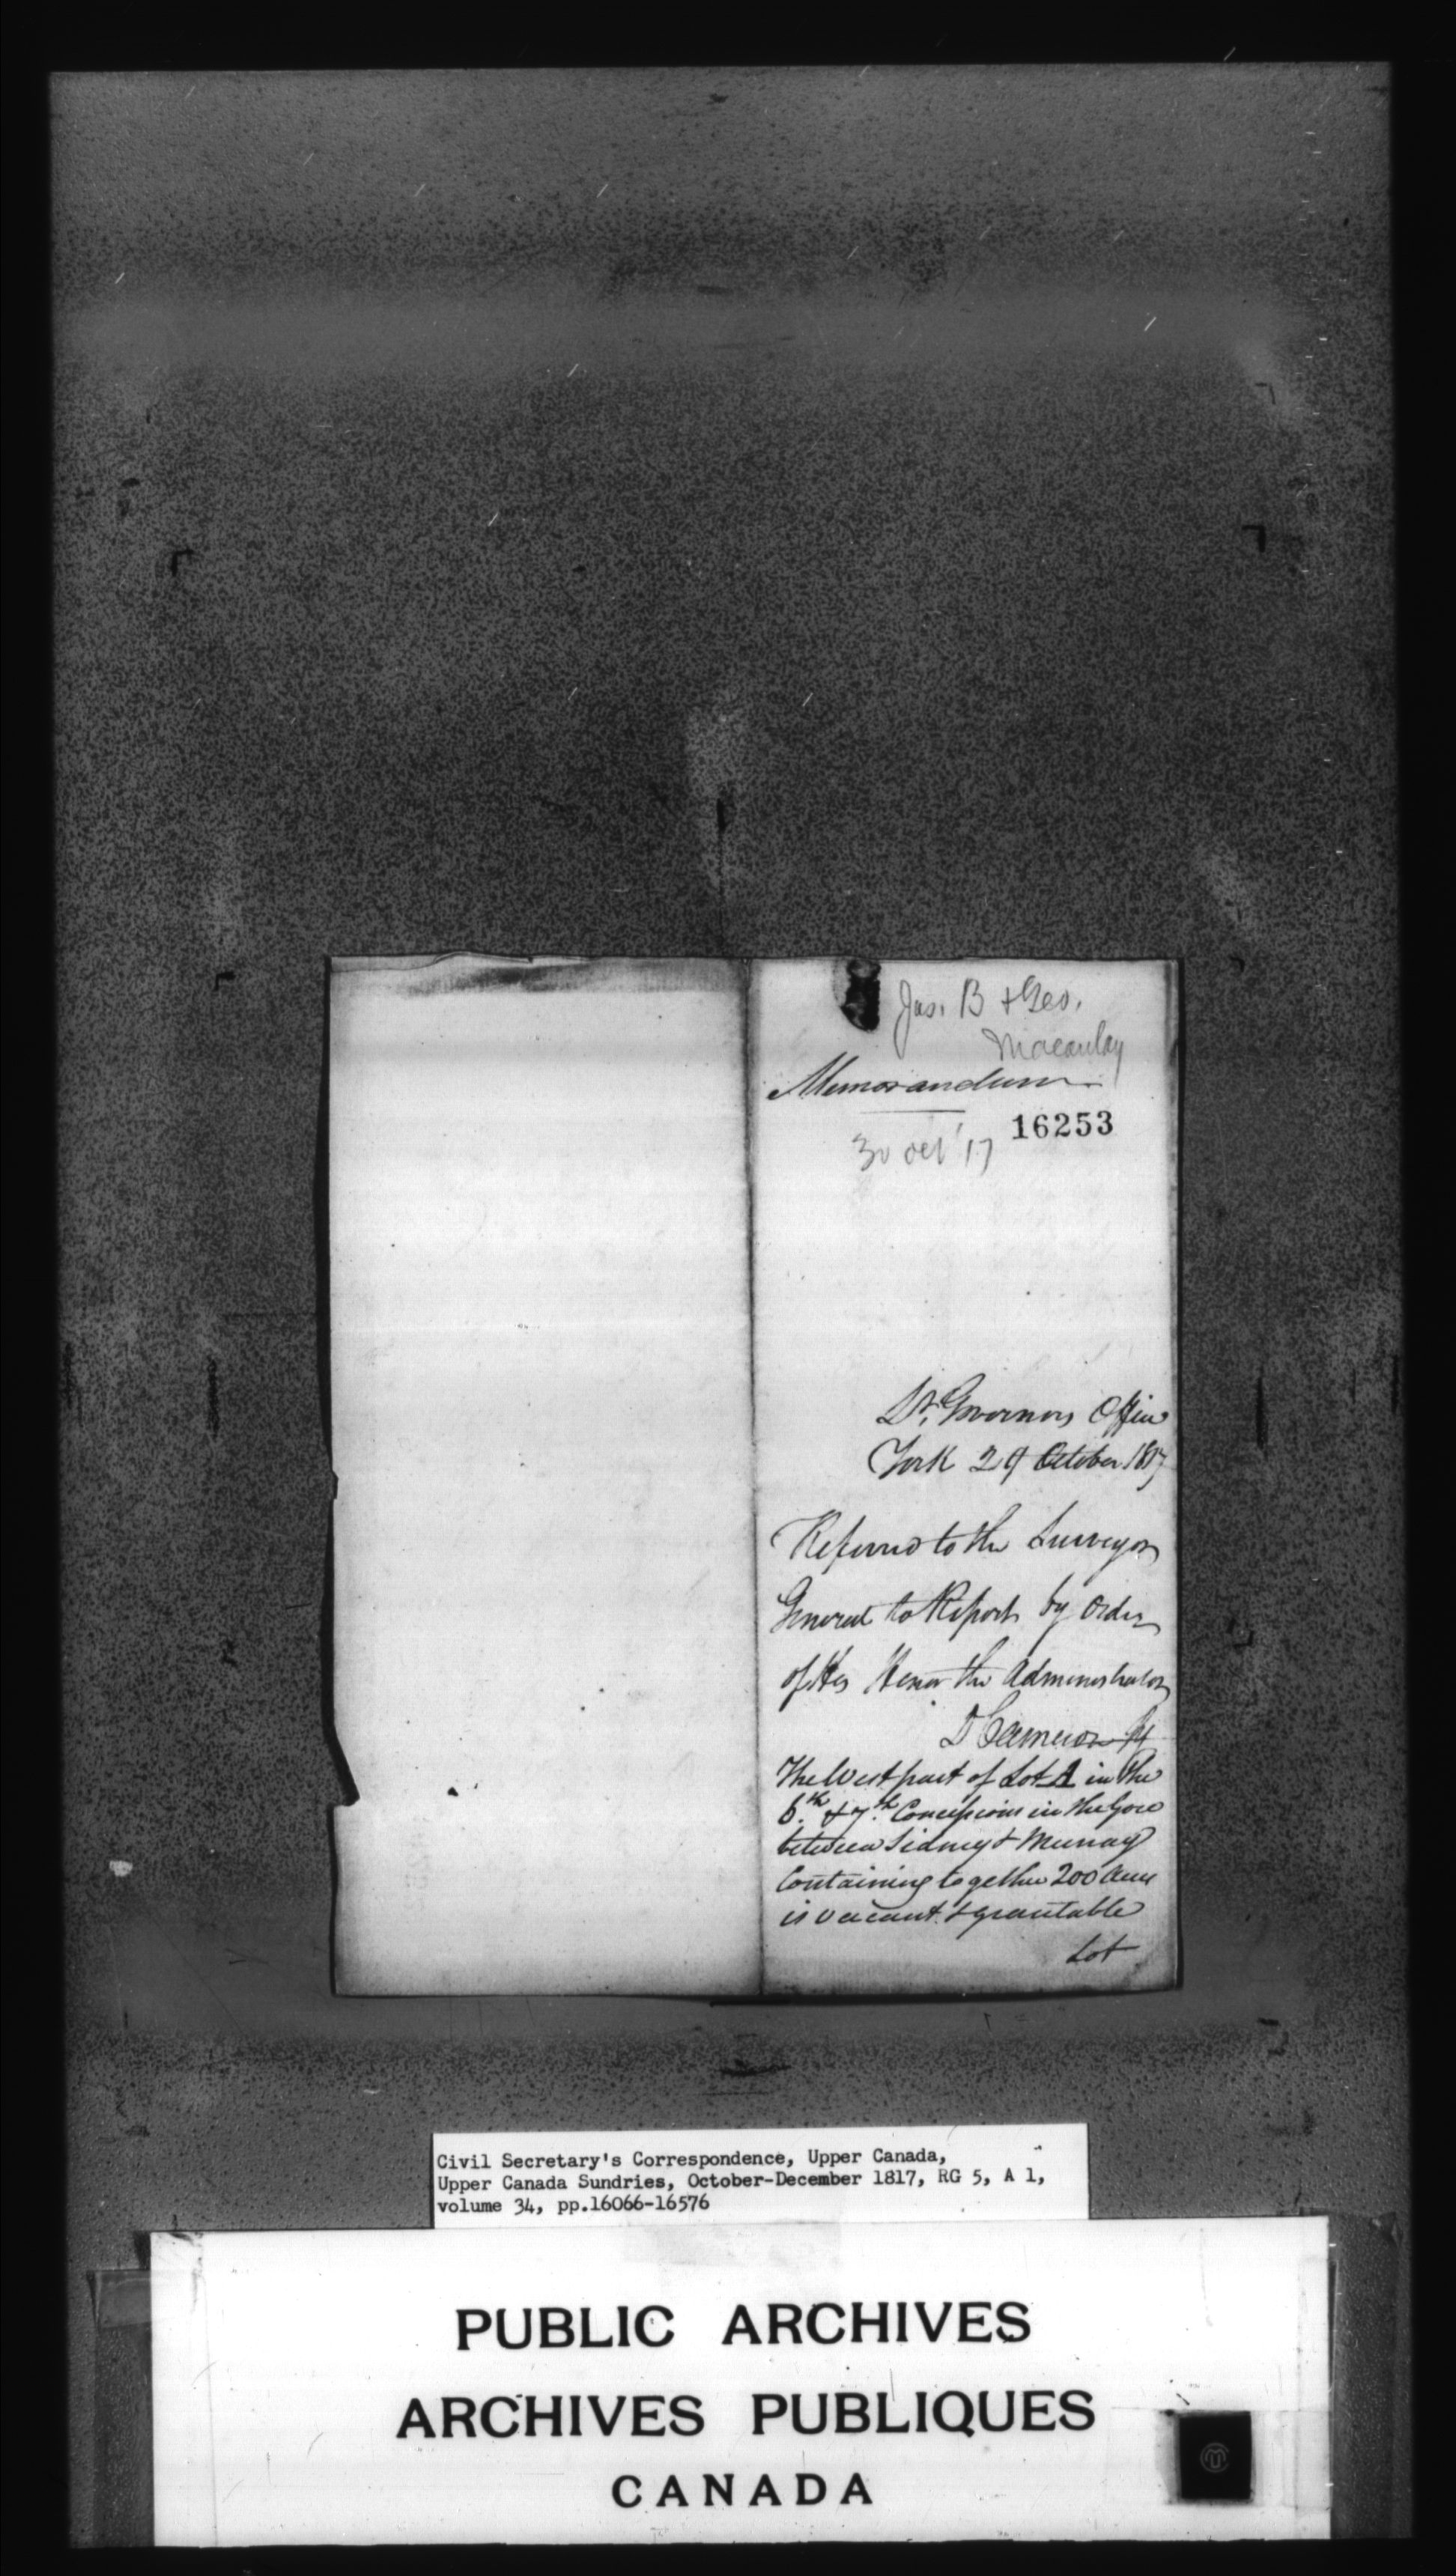 Jas. B + Geo.
Macaulay
Memorandum
16253
30 Oct '17
Lt. Governors Office
York 29 October 1817
Referred to the Surveyor
General to Report by order
of His Honor the Administrator
D Cameron
The West part of Lot A in the
6.th & 7.th Concessions in the Gore
between Sidney & Murray
Containing together 200 Acres
is vacant & grantable
Lot
Civil Secretary's Correspondence, Upper Canada,
Upper Canada Sundries, October-December 1817, RG 5, A 1,
volume 34, pp.16066-16576
PUBLIC ARCHIVES
ARCHIVES PUBLIQUES
CANADA